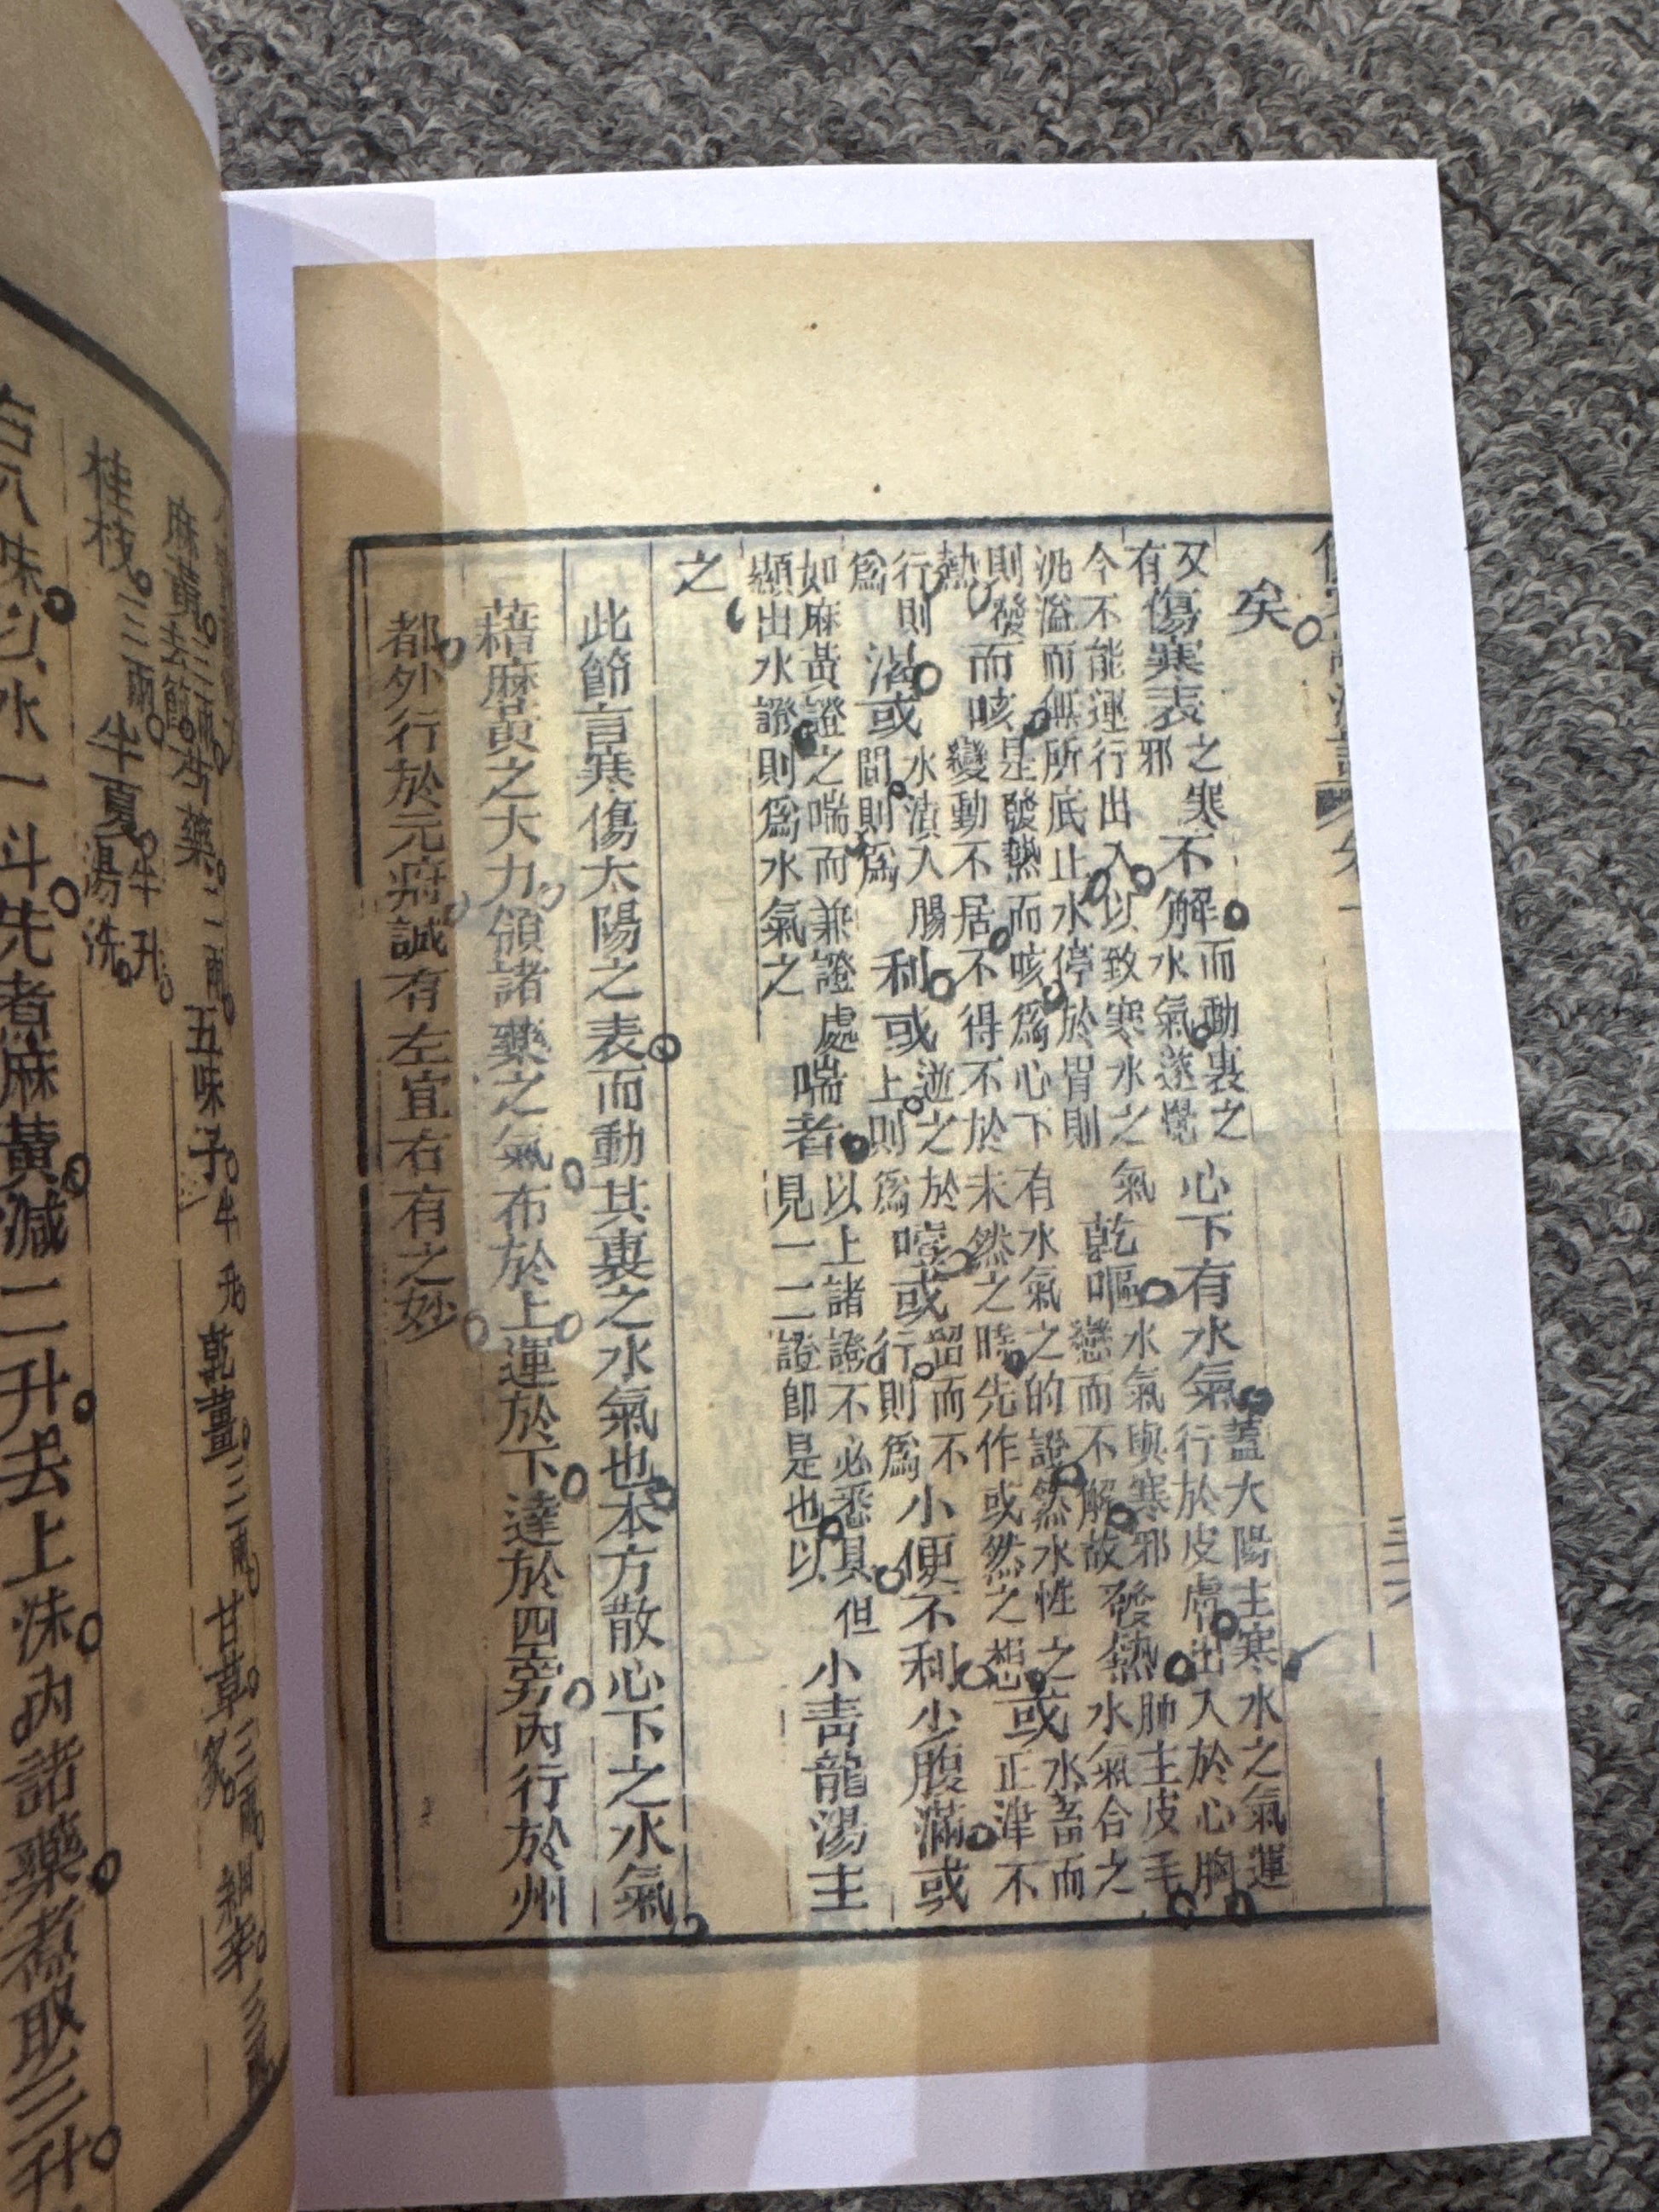 矣
又有傷寒表之寒邪不解而動裏之水氣遂覺心下有水氣蓋大陽主寒水之氣運行於皮膚出入於心胸
今不能運行出入以致寒水之氣汎溢而無所底止水停於胃則乾嘔水氣與寒邪戀而不解故發熱肺主皮毛水氣合之
則發熱而咳是發熱而咳爲心下有水氣之的證然水性變動不居不得不於未然之時先作或然之想或水畜而正津不
行則爲渴或水漬入腸間則爲利或逆之於上則爲噎或留而不行則爲小便不利少腹滿或
如麻黃證之喘而兼證處顯出水證則爲水氣之喘者以上諸證不必悉具但見一二證即是也以小青龍湯主
之
此節言寒傷太陽之表而動其裏之水氣也本方散心下之水氣
藉麻黃之大力領諸藥之氣布於上運於下達於四旁內行於州
都外行於元府誠有左宜右有之妙
麻黃三兩去節芍藥三兩五味子半升乾薑三兩甘草三兩炙細辛三兩
桂枝三兩半夏半升湯洗
右八味以水一斗先煮麻黃減二升去上沫內諸藥煮取三升